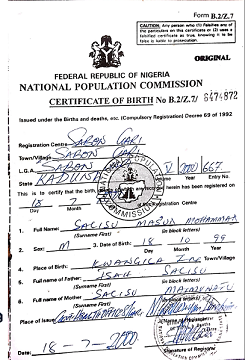 Form B.2/Z.7
CAUTION: Any person who (1) Falsifies any of the particulars on this certificate or (2) uses a falsified certificate as true, knowing it to be false is liable to prosecution.
ORIGINAL
FEDERAL REPUBLIC OF NIGERIA
NATIONAL POPULATION COMMISSION
CERTIFICATE OF BIRTH No B.2/Z.7/ 6474872
Issued under the Births and deaths, etc. (Compulsory Registration) Decree 69 of 1992
Registration Centre SABON GARI
Town/Village SABON GARI
L.G.A. SABAN GARI V 2000 667
State KADUNA Year Entry No.
This is to certify that the birth, herein has been registered on
18 7 Registration Centre
Day Month
1. Full Name: SALISU MOHAMMAD
(Surname First) (in block letters)
2. Sex: M 3. Date of Birth: 18 10 99
Day Month Year
4. Place of Birth: Town/Village
5. Full Name of Father: ISAH SALISU
(Surname First) (in block letters)
6. Full name of Mother: SALISU MAIMUNATU
(Surname First) (in block letters)
Place of Issue:
Date 18-7-2000
Signature of Registrar